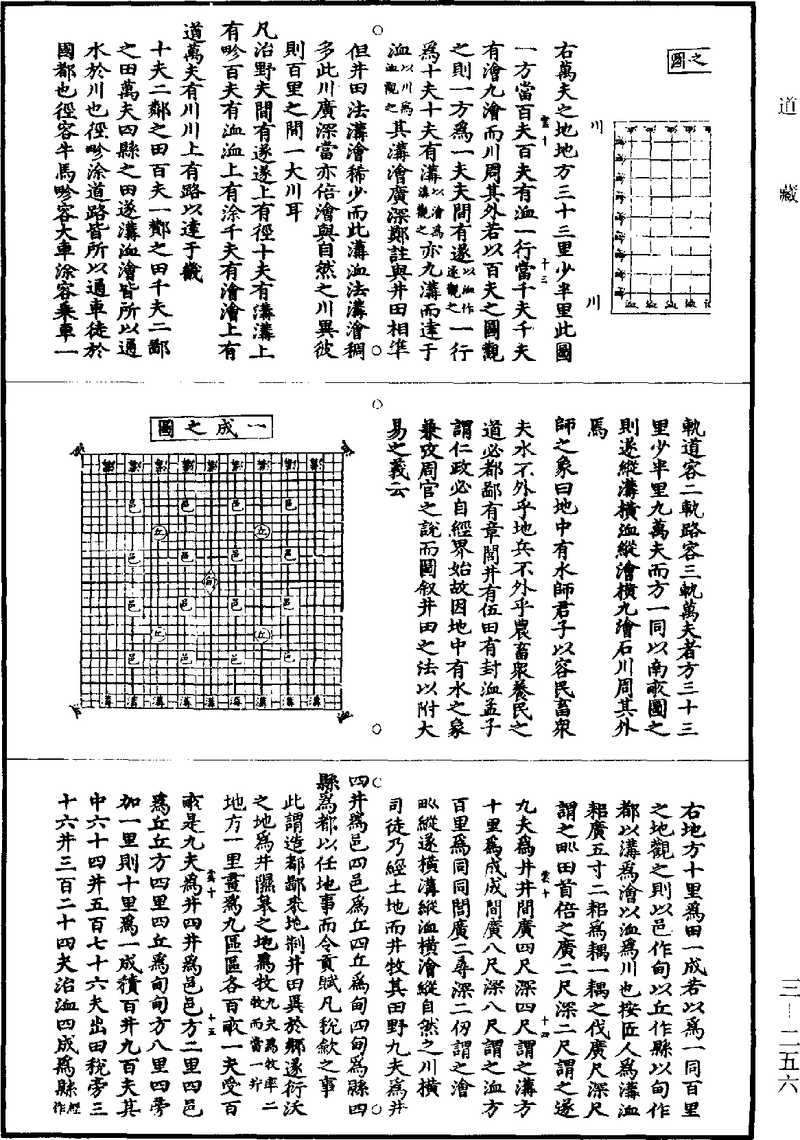 道藏
三—二五六
之圖
川
川
右萬夫之地地方三十三里少半里此圖
一方當百夫百夫有洫一行當千夫千夫
有澮九澮而川周其外若以百夫之圖觀
之則一方爲一夫夫間有遂以洫作遂觀之一行
爲十夫十夫有溝以澮爲溝觀之亦九溝而達于
洫以川爲洫觀之其溝澮廣深鄭註與井田相準
但井田法溝澮稀少而此溝洫法溝澮稠
多此川廣深當亦倍澮與自然之川異彼
則百里之間一大川耳
凡治野夫間有遂遂上有徑十夫有溝溝上
有畛百夫有洫洫上有涂千夫有澮澮上有
道萬夫有川川上有路以達于畿
十夫二鄰之田百夫一酇之田千夫二鄙
之田萬夫四縣之田遂溝洫澮皆所以通
水於川也徑畛涂道路皆所以通車徒於
國都也徑容牛馬畛容大車涂容乘車一
軌道容二軌路容三軌萬夫者方三十三
里少半里九萬夫而方一同以南畝圖之
則遂縱溝橫洫縱澮橫九澮石川周其外
焉
師之象曰地中有水師君子以容民畜衆
夫水不外乎地兵不外乎農畜衆養民之
道必都鄙有章閭井有伍田有封洫孟子
謂仁政必自經界始故因地中有水之象
兼攷周官之說而圖叙井田之法以附大
易之義云
一成之圖
右地方十里爲田一成若以爲一同百里
之地觀之則以邑作甸以丘作縣以甸作
都以溝爲澮以洫爲川也按匠人爲溝洫
耜廣五寸二耜爲耦一耦之伐廣尺深尺
謂之𤰕田首倍之廣二尺深二尺謂之遂
九夫爲井井間廣四尺深四尺謂之溝方
十里爲成成間廣八尺深八尺謂之洫方
百里爲同同間廣二尋深二仞謂之澮
𤰕縱遂橫溝縱洫橫澮縱自然之川橫
司徒乃經土地而井牧其田野九夫爲井
四井爲邑四邑爲丘四丘爲甸四甸爲縣四
縣爲都以任地事而令貢賦凡稅歛之事
此謂造都鄙采地制井田異於鄉遂衍沃
之地爲井隰臯之地爲牧九夫爲牧率二牧而當一井
地方一里畫爲九區區各百畝一夫受百
畝是九夫爲井四井爲邑邑方二里四邑
爲丘丘方四里四丘爲甸甸方八里四旁
加一里則十里爲一成積百井九百夫其
中六十四井五百七十六夫出田稅旁三
十六井三百二十四夫治洫四成爲縣經作